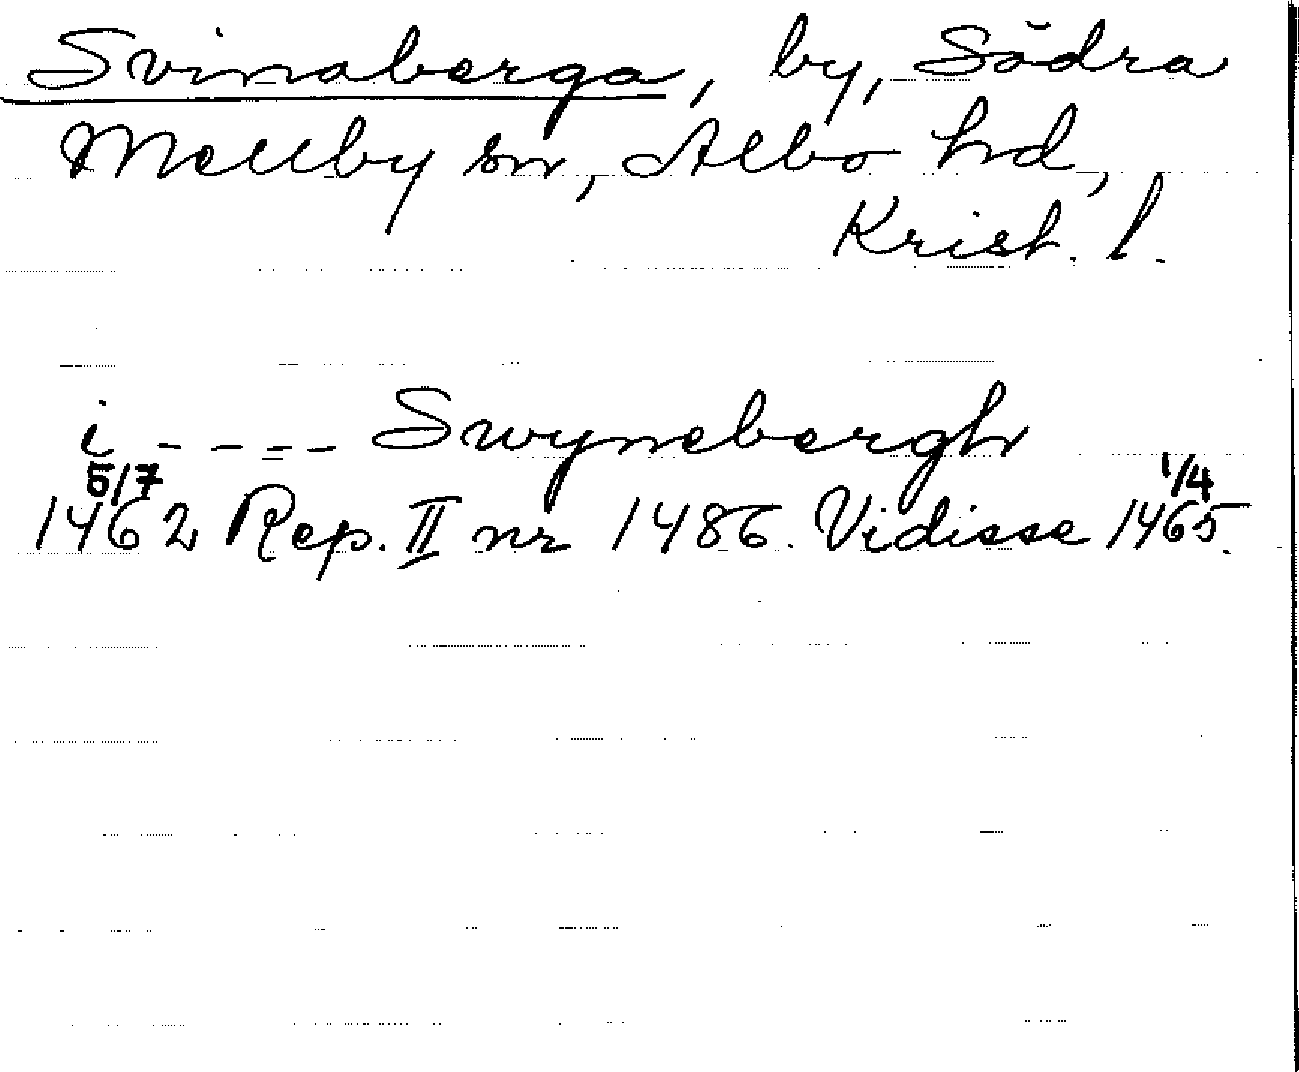 Svinaberga, by, Södra
Mellby sn, Albo hd,
Krist. l.
i - - - - Swynebergh
5/7 1/4
1462 Rep. II nr 1486. Vidisse 1465.